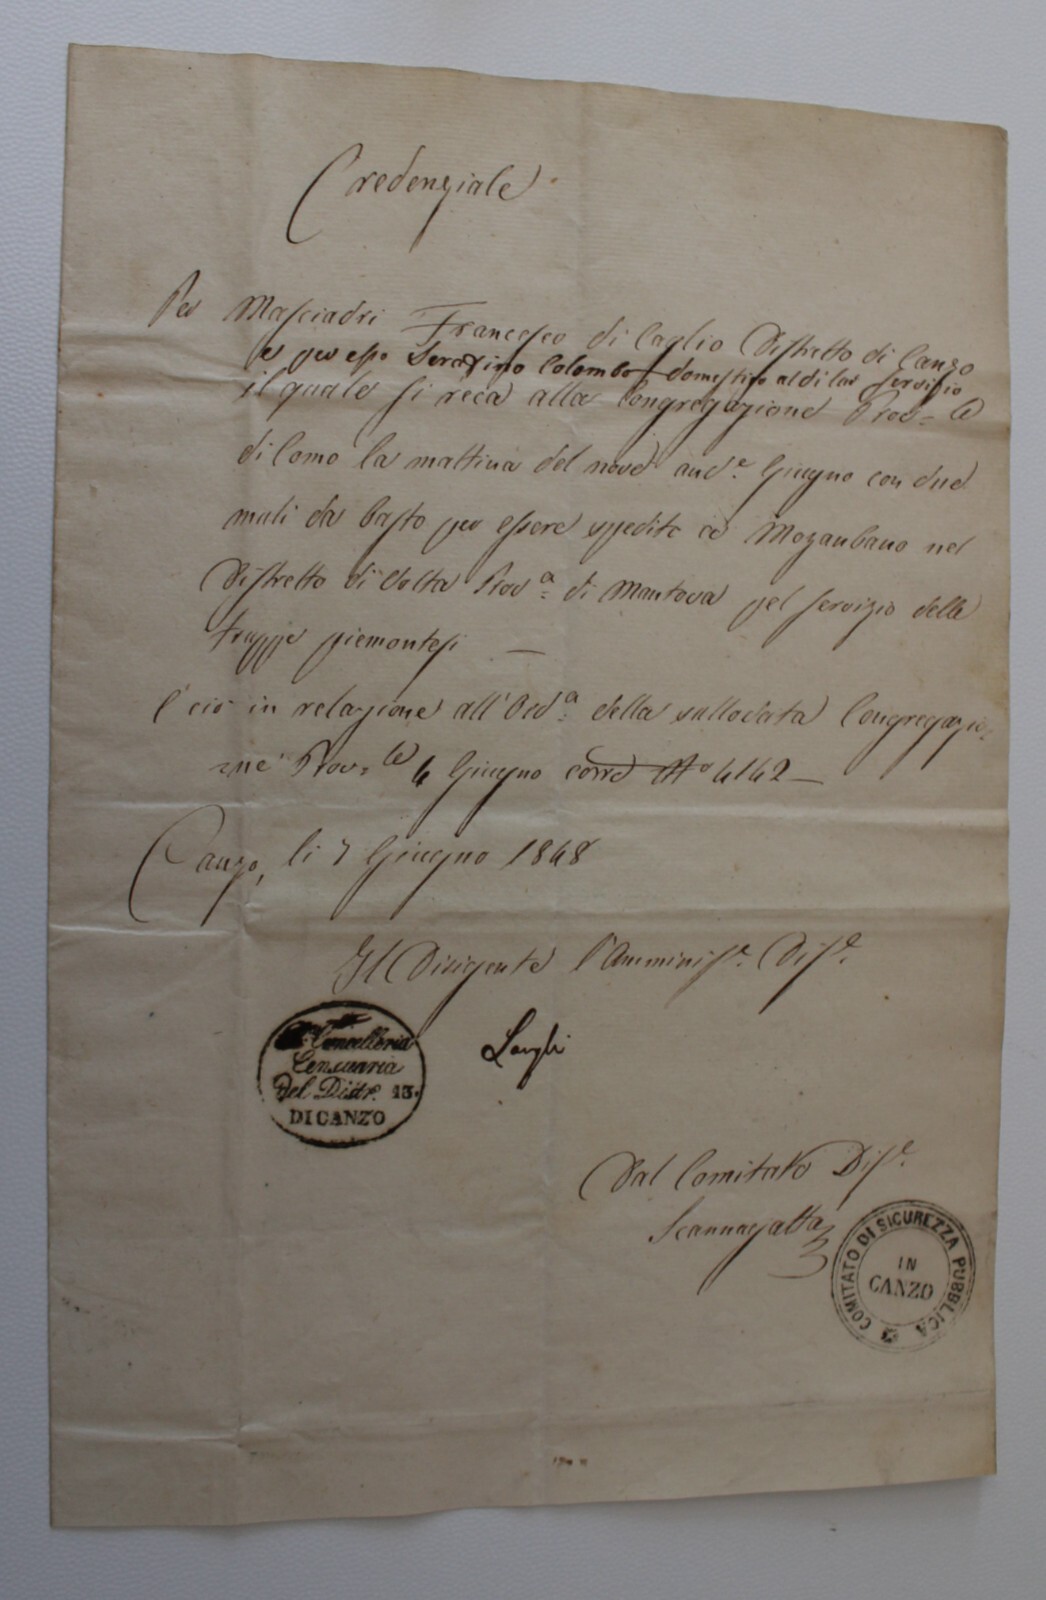 Credenziale
Per Masciadri Francesco di Caglio Distretto di Canzo
e per esso Serafino Colombo domestico al di lui servizio
il quale si reca alla Congregazione Prov.le
di Como la mattina del nove and.e Giugno con due
muli da basto per essere spedito a Mozanbano nel
Distretto di Volta Prov.a di Mantova pel servizio delle
truppe piemontesi —
E ciò in relazione all'Ord.a della sullodata Congregazio-
ne Prov.le 4 Giugno corr.e N.o 4142 —
Canzo, li 7 Giugno 1848
Il Dirigente l'Amminis.e Dis.e
Cancelleria
Censuaria
del Distr. 13.
DI CANZO
Longhi
Dal Comitato Dis.e
Scannagatta
COMITATO DI SICUREZZA PUBBLICA
IN
CANZO